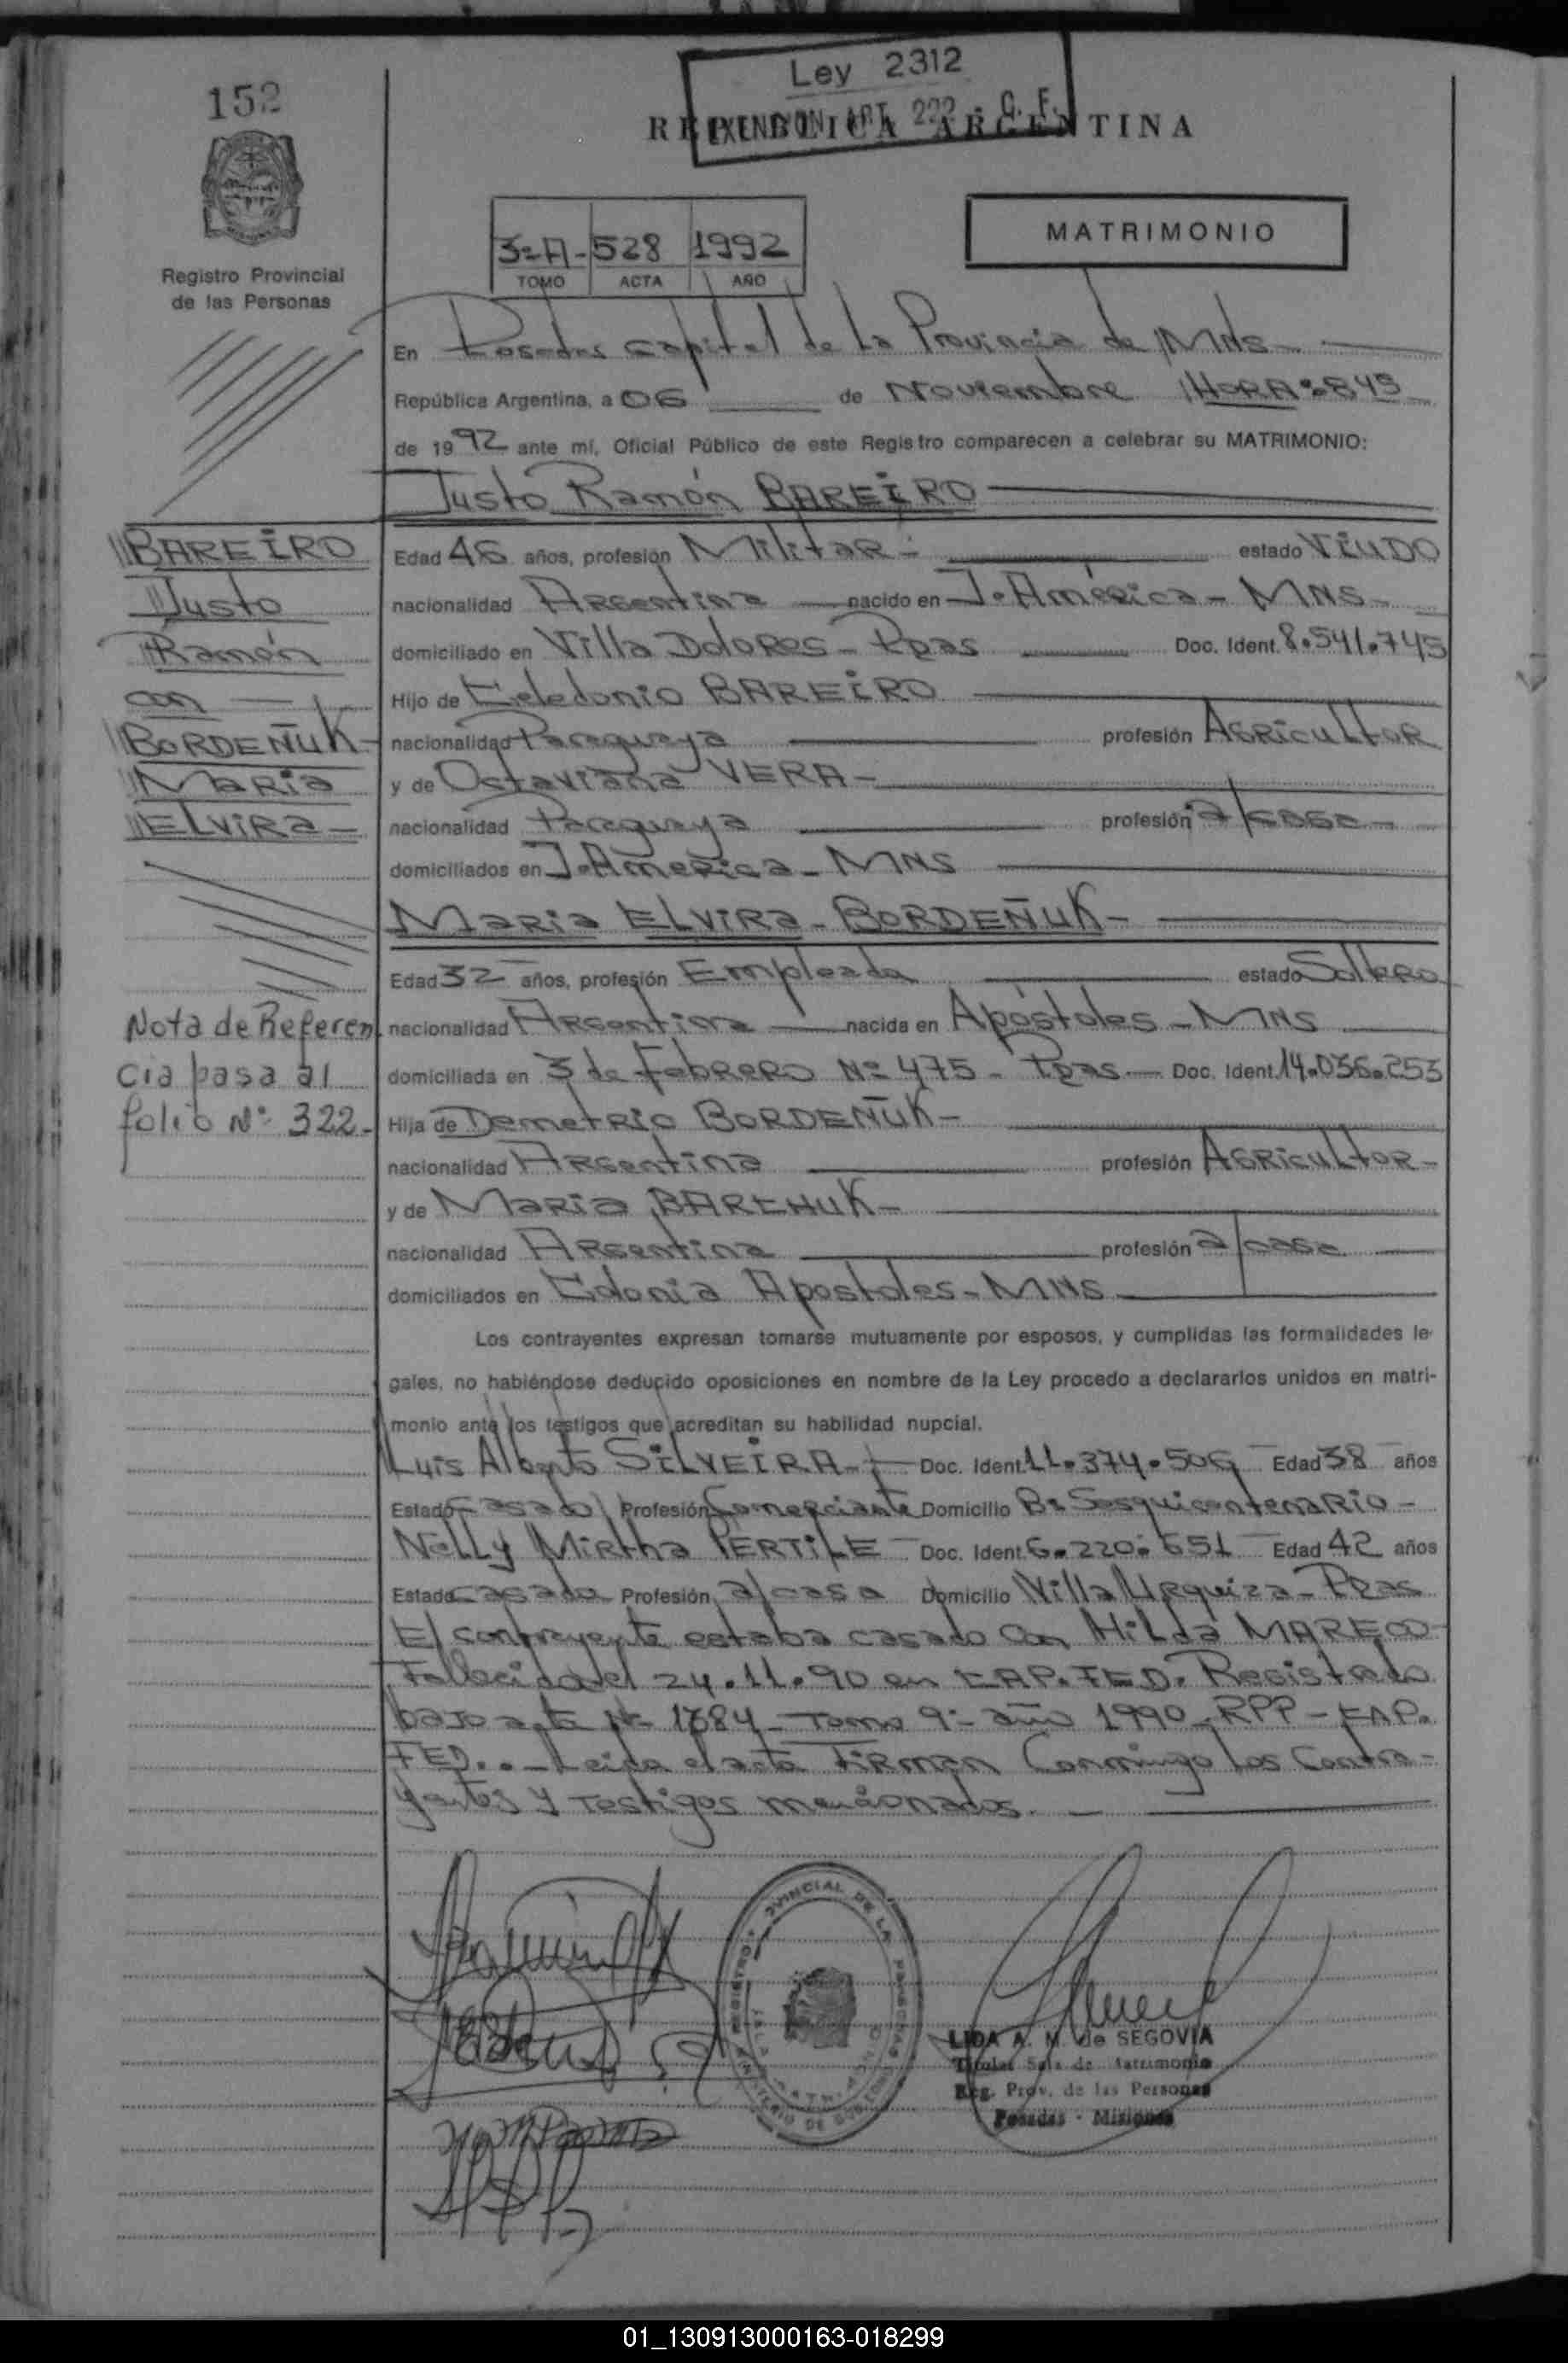 152
Ley 2312
EXENDON ART. 222 - C. F.
REPUBLICA ARGENTINA
3=A- 528 1992
TOMO ACTA AÑO
MATRIMONIO
Registro Provincial
de las Personas
En Posadas Capital de la Provincia de MNS
República Argentina, a 06 de Noviembre HORA: 8 45
de 1992 ante mí, Oficial Público de este Registro comparecen a celebrar su MATRIMONIO:
Justo Ramón BAREIRO
BAREIRO
Justo
Ramón
con
BORDEÑUK
Maria
ELVIRA
Edad 46 años, profesión Militar estado Viudo
nacionalidad Argentina nacido en J. América - MNS
domiciliado en Villa Dolores - Pdas Doc. Ident. 8.541.745
Hijo de Celedonio BAREIRO
nacionalidad Paraguaya profesión Agricultor
y de Octaviana VERA
nacionalidad Paraguaya profesión a/casa
domiciliados en J. America - MNS
Maria ELVIRA - BORDEÑUK
Edad 32 años, profesión Empleada estado Soltera
nacionalidad Argentina nacida en Apóstoles - MNS
domiciliada en 3 de Febrero Nº 475 - Pdas Doc. Ident. 14.036.253
Hija de Demetrio BORDEÑUK
nacionalidad Argentina profesión Agricultor
y de Maria BARCHUK
nacionalidad Argentina profesión a/casa
domiciliados en Colonia Apostoles - MNS
Nota de Referen
cia pasa al
folio Nº 322.
Los contrayentes expresan tomarse mutuamente por esposos, y cumplidas las formalidades le-
gales, no habiéndose deducido oposiciones en nombre de la Ley procedo a declararlos unidos en matri-
monio ante los testigos que acreditan su habilidad nupcial.
Luis Alberto SILVEIRA Doc. Ident. 11.374.506 Edad 38 años
Estado Casado Profesión Comerciante Domicilio Bº Sesquicentenario
Nelly Mirtha PERTILE Doc. Ident. 6.220.651 Edad 42 años
Estado casada Profesión a/casa Domicilio Villa Urquiza - Pdas
El contrayente estaba casado con Hilda MARECO
Fallecida el 24.11.90 en CAP. FED. Registrado
bajo acta Nº 1384 - Tomo 9º año 1990 - RPP - CAP.
FED.. - Leida el acta firman conmigo los contra-
yentes y testigos mencionados.
LIDA A. M. de SEGOVIA
Titular Sala de Matrimonio
Reg. Prov. de las Personas
Posadas - Misiones
01_130913000163-018299